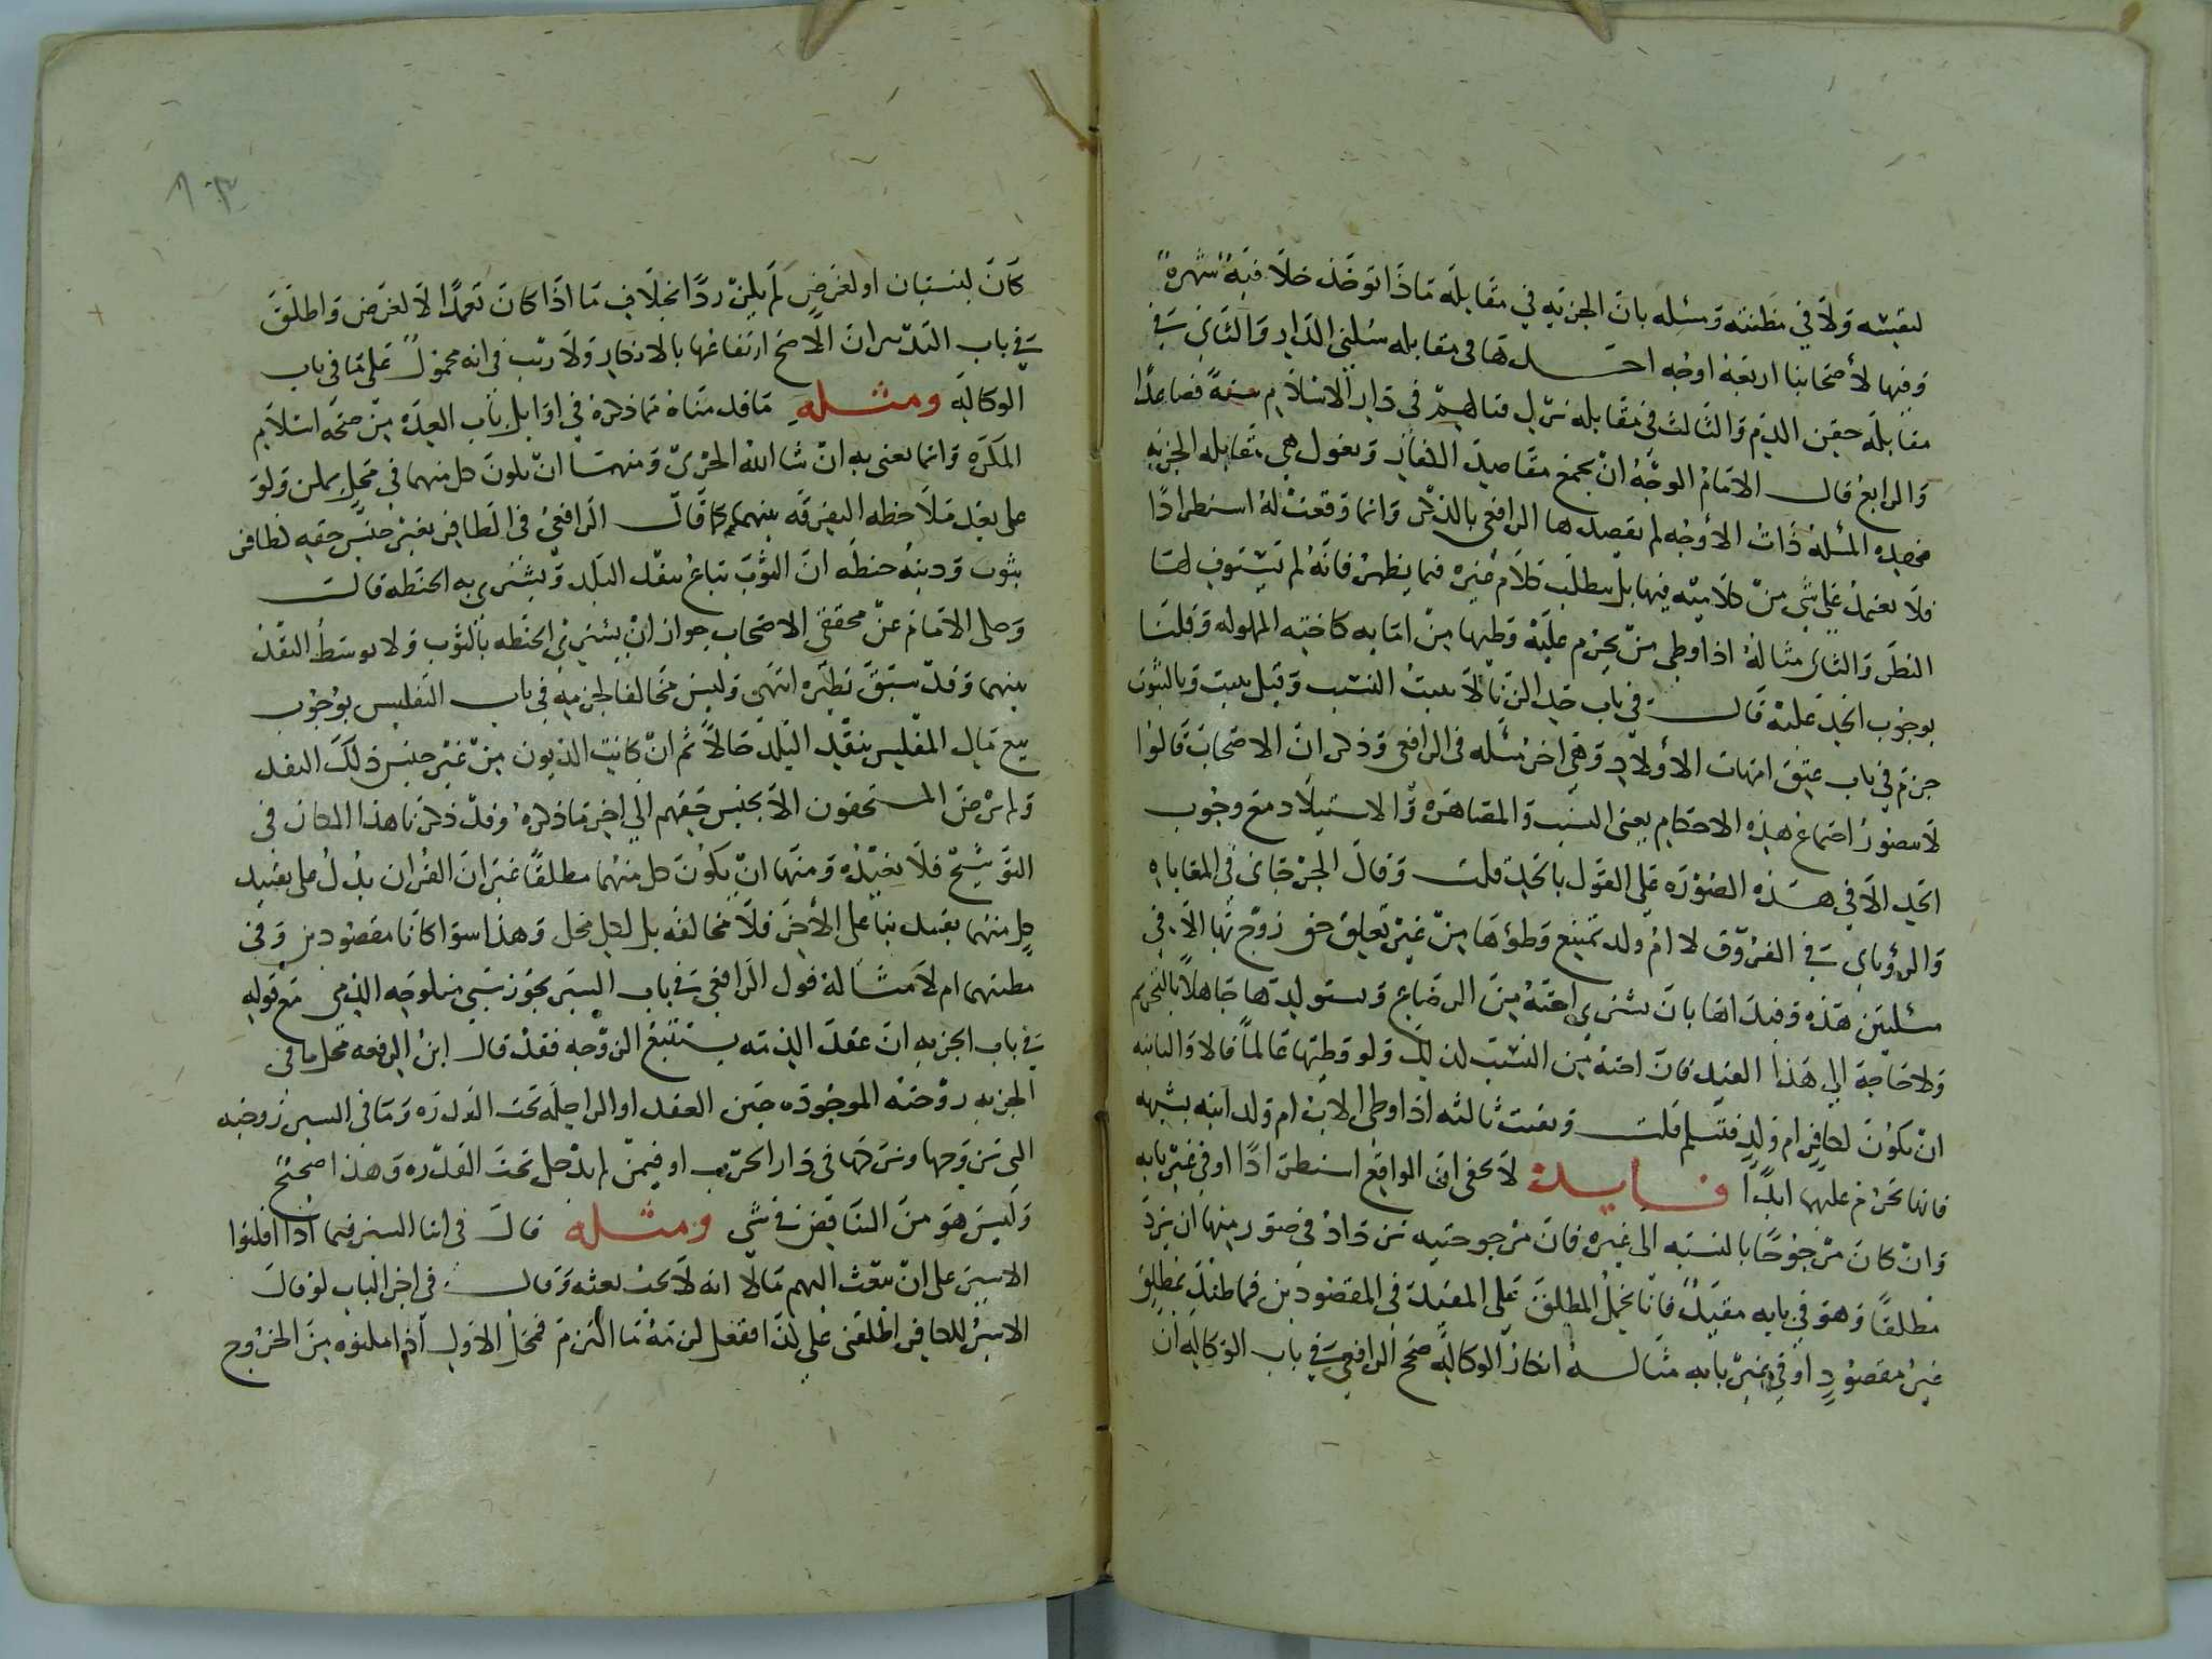 لنفسه ولا في مظنته ومسئله بان الجزيه في مقابله ماذا توخذ خلافيه شهره
وفيها لأصحابنا اربعة اوجه احدها في مقابله سكنى الدار والثاني في
مقابله حقن الدم والثالث في مقابله ترك قتالهم في دار الاسلام سنة فصاعدا
والرابع قال الامام الوجه ان يجمع مقاصد الكفار ويقول هي مقابله الجزيه
فهذه المسئله ذات الأوجه لم يقصدها الرافعي بالذكر وانما وقعت له استطرادا
فلا يعتمد على شي من كلامه فيها بل يطلب كلام غيره فيما يظهر فانه لم يستوف لها
النظر والثاني مثاله اذا وطي من يحرم عليه وطيها من امايه كاخته المملوكه وقلنا
بوجوب الحد عليه قال في باب حد الزنا لا يثبت النسب وقيل يثبت وبالثبوت
جزم في باب عتق امهات الأولاد وهي اخر مسئله في الرافعي وذكر ان الاصحاب قالوا
لا يتصور اجتماع هذه الاحكام يعني النسب والمصاهره والاستيلاد مع وجوب
الحد الا في هذه الصوره على القول بالحد قلت وقال الجرجاني في المعاياه
والروياني في الفروق لا ام ولد تمتنع وطوها من غير تعلق حق زوج بها الا في
مسئلتين هذه وقيداها بان يشتري اخته من الرضاع ويستولدها جاهلا بالتحريم
ولا حاجة الى هذا القيد فان اخته من النسب كذلك ولو وطيها عالما قالا والثانيه
ان يكون لكافر ام ولد فتسلم قلت وبقيت ثالثه اذا وطي الاب ام ولد ابنه بشبهه
فانها تحرم عليهما ابدا فايدة لا يخفى ان الواقع استطرادا او في غير بابه
وان كان مرجوحا بالنسبه الى غيره فان مرجوحيته تزداد في صور منها ان يرد
مطلقا وهو في بابه مقيد فانا نحمل المطلق على المقيد في المقصودين فما ظنك بمطلق
غير مقصود او في غير بابه مثاله انكار الوكاله صحح الرافعي في باب الوكاله ان
كان لنسيان او لغرض لم يكن ردا بخلاف ما اذا كان تعمدا لا لغرض واطلق
في باب التدبير ان الاصح ارتفاعها بالانكار ولا ريب في انه محمول على ما في باب
الوكاله ومثله ما قدمناه مما ذكره في اوايل باب العده من صحه اسلام
المكره وانما يعني به ان شا الله الحربي ومنها ان يكون كل منهما في محل يمكن ولو
على بعد ملاحظه التفرقه بينهما كما قال الرافعي في الظافر بغير جنس حقه لظافر
بثوب ودينه حنطه ان الثوب تباع بنقد البلد ويشتري به الحنطه قال
وحكى الامام عن محققي الاصحاب جواز ان يشتري الحنطه بالثوب ولا يوسط النقد
بينهما وقد سبق نظيره انتهى وليس مخالفا لجزمه في باب التفليس بوجوب
بيع مال المفلس بنقد البلد حالا ثم ان كانت الديون من غير جنس ذلك النقد
ولم يرض المستحقون الا بجنس حقهم الى اخر ما ذكره وقد ذكرنا هذا المكان في
التوشيح فلا نعيده ومنها ان يكون كل منهما مطلقا غير ان القران يدل على تقييد
كل منهما بقيد بنا على الآخر فلا مخالفه بل لكل محل وهذا سوا كانا مقصودين وفي
مظنتهما ام لا مثاله قول الرافعي في باب السير يجوز سبي منكوحه الذمي مع قوله
في باب الجزيه ان عقد الذمه يستتبع الزوجه فقد قال ابن الرفعه محل ما في
الجزيه زوجته الموجوده حين العقد او الداخله تحت القدره وما في السير زوجته
التي تزوجها وتركها في دار الحرب او فيمن لم يدخل تحت القدره وهذا صحيح
وليس هو من التناقض في شي ومثله قال في اثنا السير فيما اذا افلتوا
الاسير على ان يبعث اليهم مالا انه لا يجب بعثه وقال في اخر الباب لو قال
الاسير للكافر اطلقني على كذا ففعل لزمه ما التزم فمحل الاول اذا ملكوه من الخروج